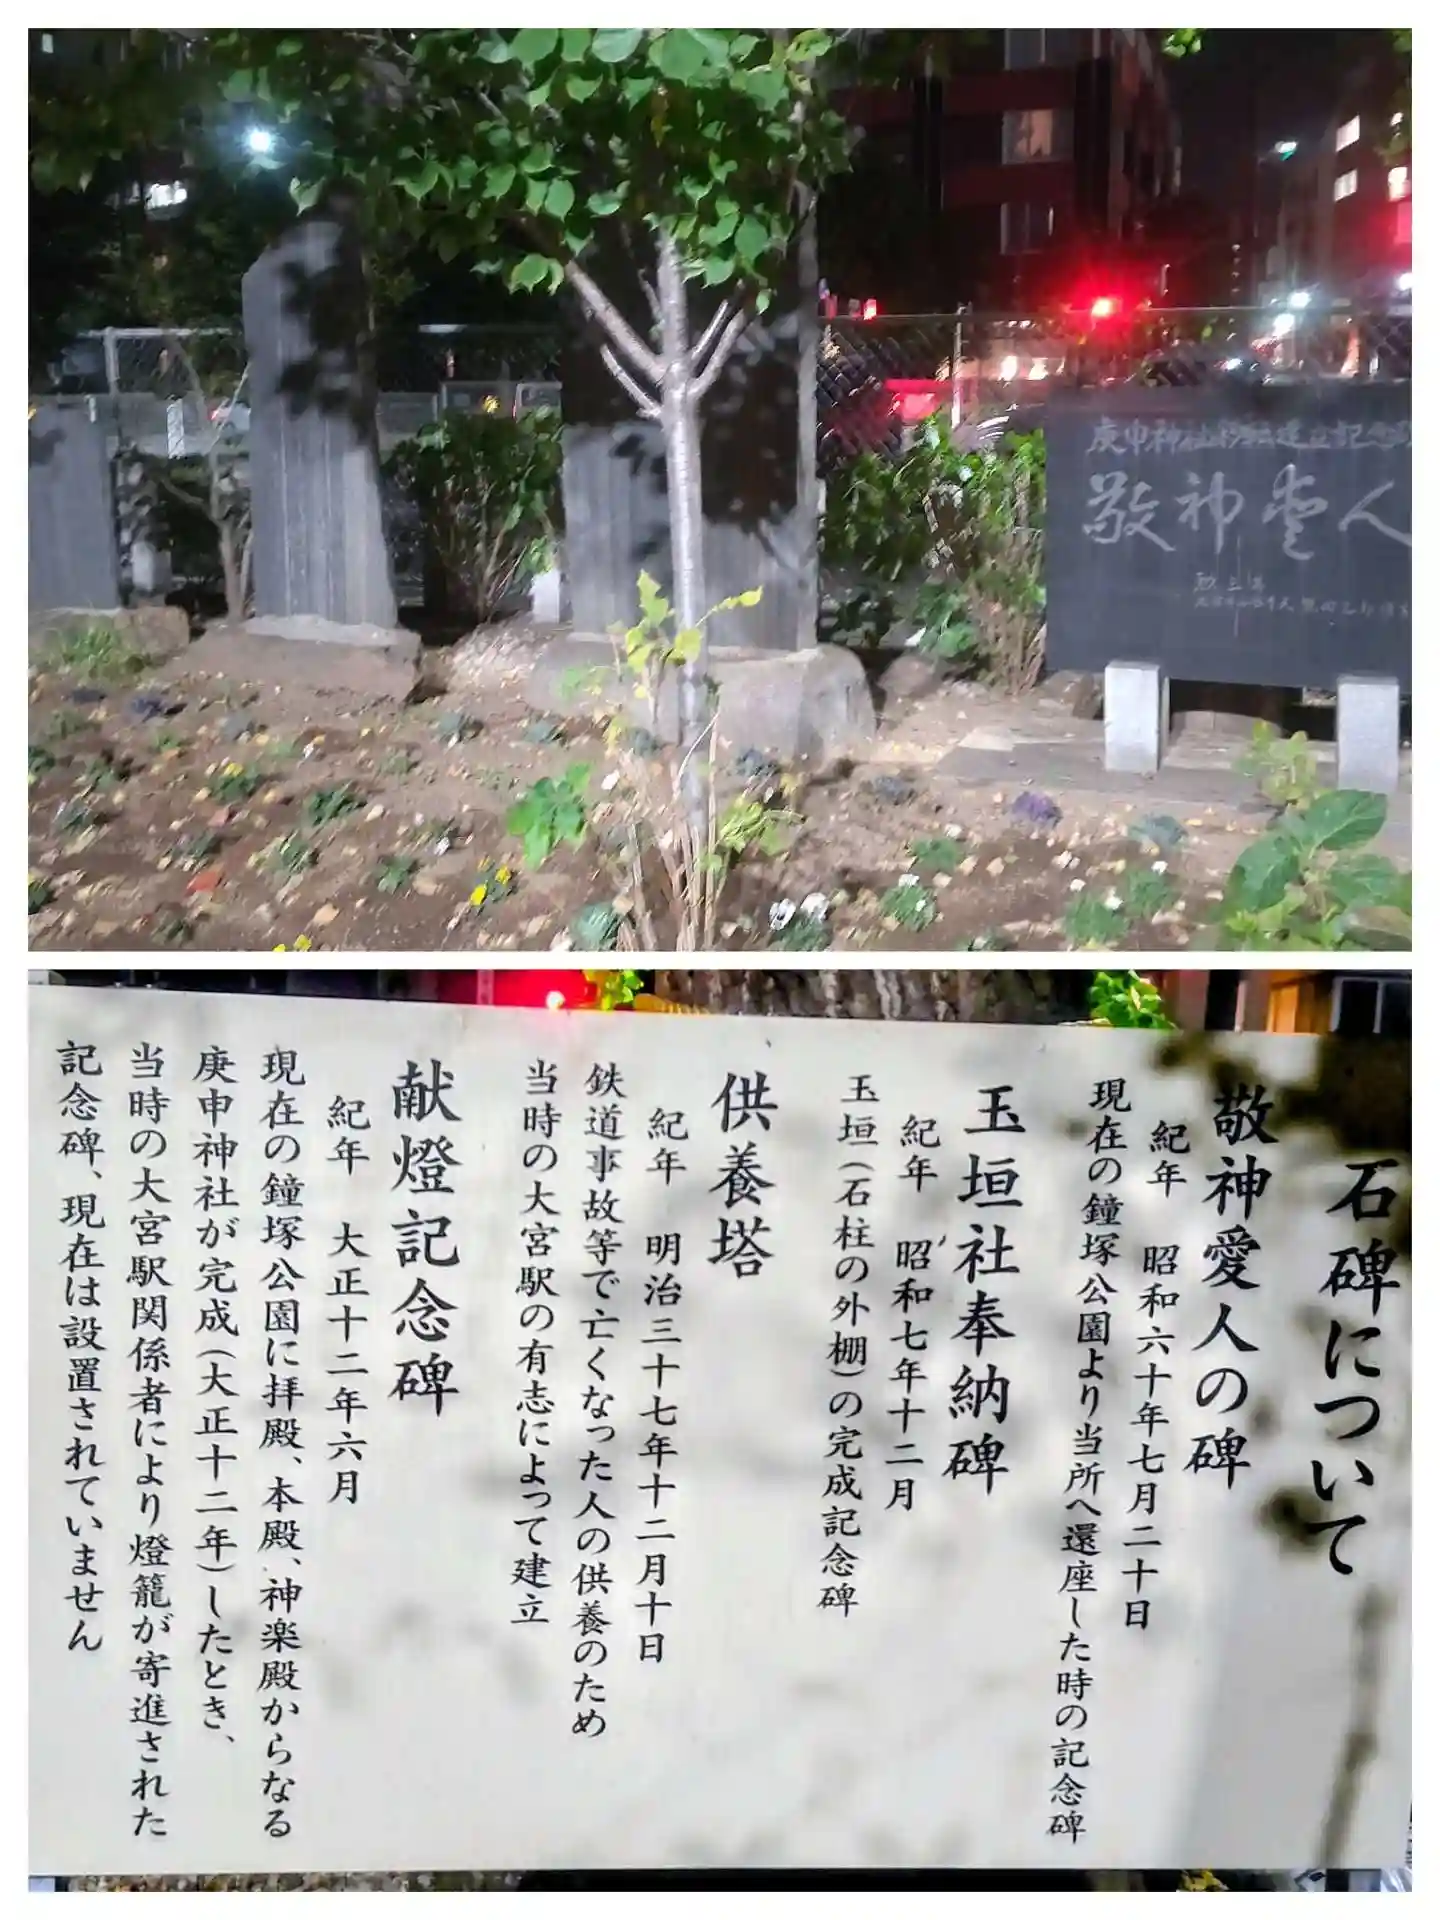 敬神愛人
石碑について
敬神愛人の碑
紀年 昭和六十年七月二十日
現在の鐘塚公園より当所へ還座した時の記念碑
玉垣社奉納碑
紀年 昭和七年十二月
玉垣(石柱の外棚)の完成記念碑
供養塔
紀年 明治三十七年十二月十日
鉄道事故等で亡くなった人の供養のため
当時の大宮駅の有志によって建立
献燈記念碑
紀年 大正十二年六月
現在の鐘塚公園に拝殿、本殿、神楽殿からなる
庚申神社が完成(大正十二年)したとき、
当時の大宮駅関係者により燈籠が寄進された
記念碑、現在は設置されていません